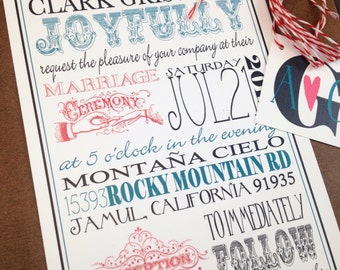 CLARK GR
JOYFULLY
request the pleasure of your company at their
MARRIAGE
CEREMONY
SATURDAY
JULY 21
20
at 5 o'clock in the evening
MONTAÑA CIELO
15393 ROCKY MOUNTAIN RD
JAMUL, CALIFORNIA 91935
TO IMMEDIATELY
FOLLOW
A ♥ G